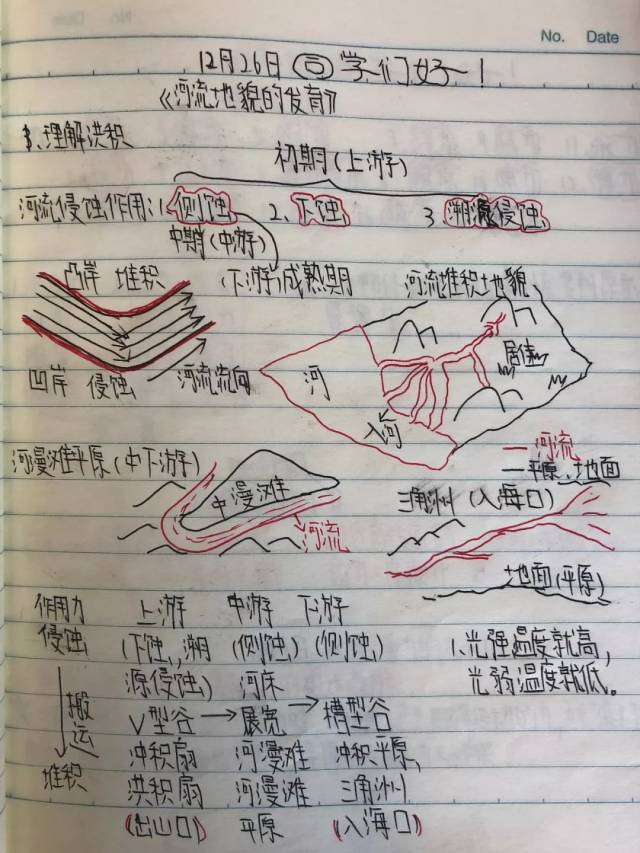 No. Date
12月26日 同学们好!
《河流地貌的发育》
1、理解洪积
初期(上游)
河流侵蚀作用:1.侧蚀 2、下蚀 3.溯源侵蚀
中期(中游)
凸岸 堆积 (下游)成熟期 河流堆积地貌
河
凹岸 侵蚀 河流流向 入河
河漫滩平原(中下游) 一河流
一平原、地面
中漫滩 三角洲(入海口)
河流
地面(平原)
作用力 上游 中游 下游
侵蚀 (下蚀、溯 (侧蚀) (侧蚀) 1、光强温度就高,
源侵蚀) 河床 光弱温度就低。
搬运 V型谷→展宽→槽型谷
冲积扇 河漫滩 冲积平原、
堆积 洪积扇 河漫滩 三角洲
(出山口) 平原 (入海口)